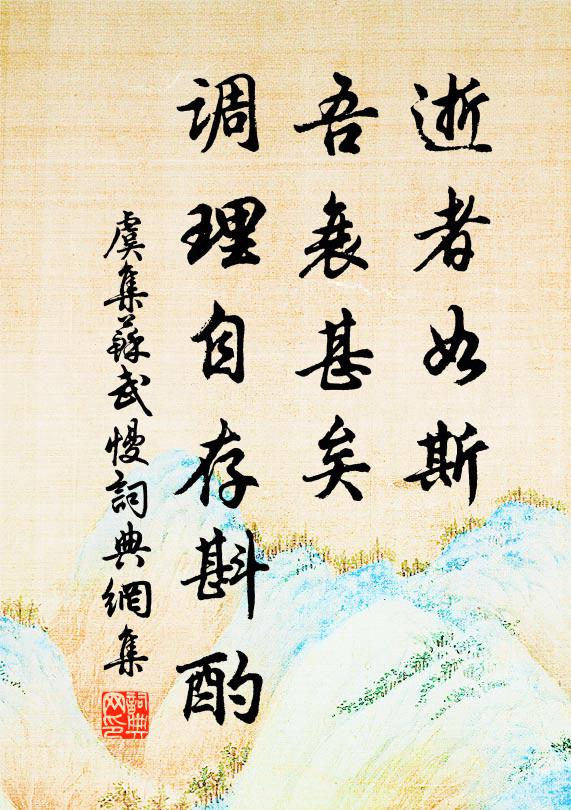 逝者如斯
吾衰甚矣
调理自存斟酌
虞集蘇武慢詞典網集
詞典網印